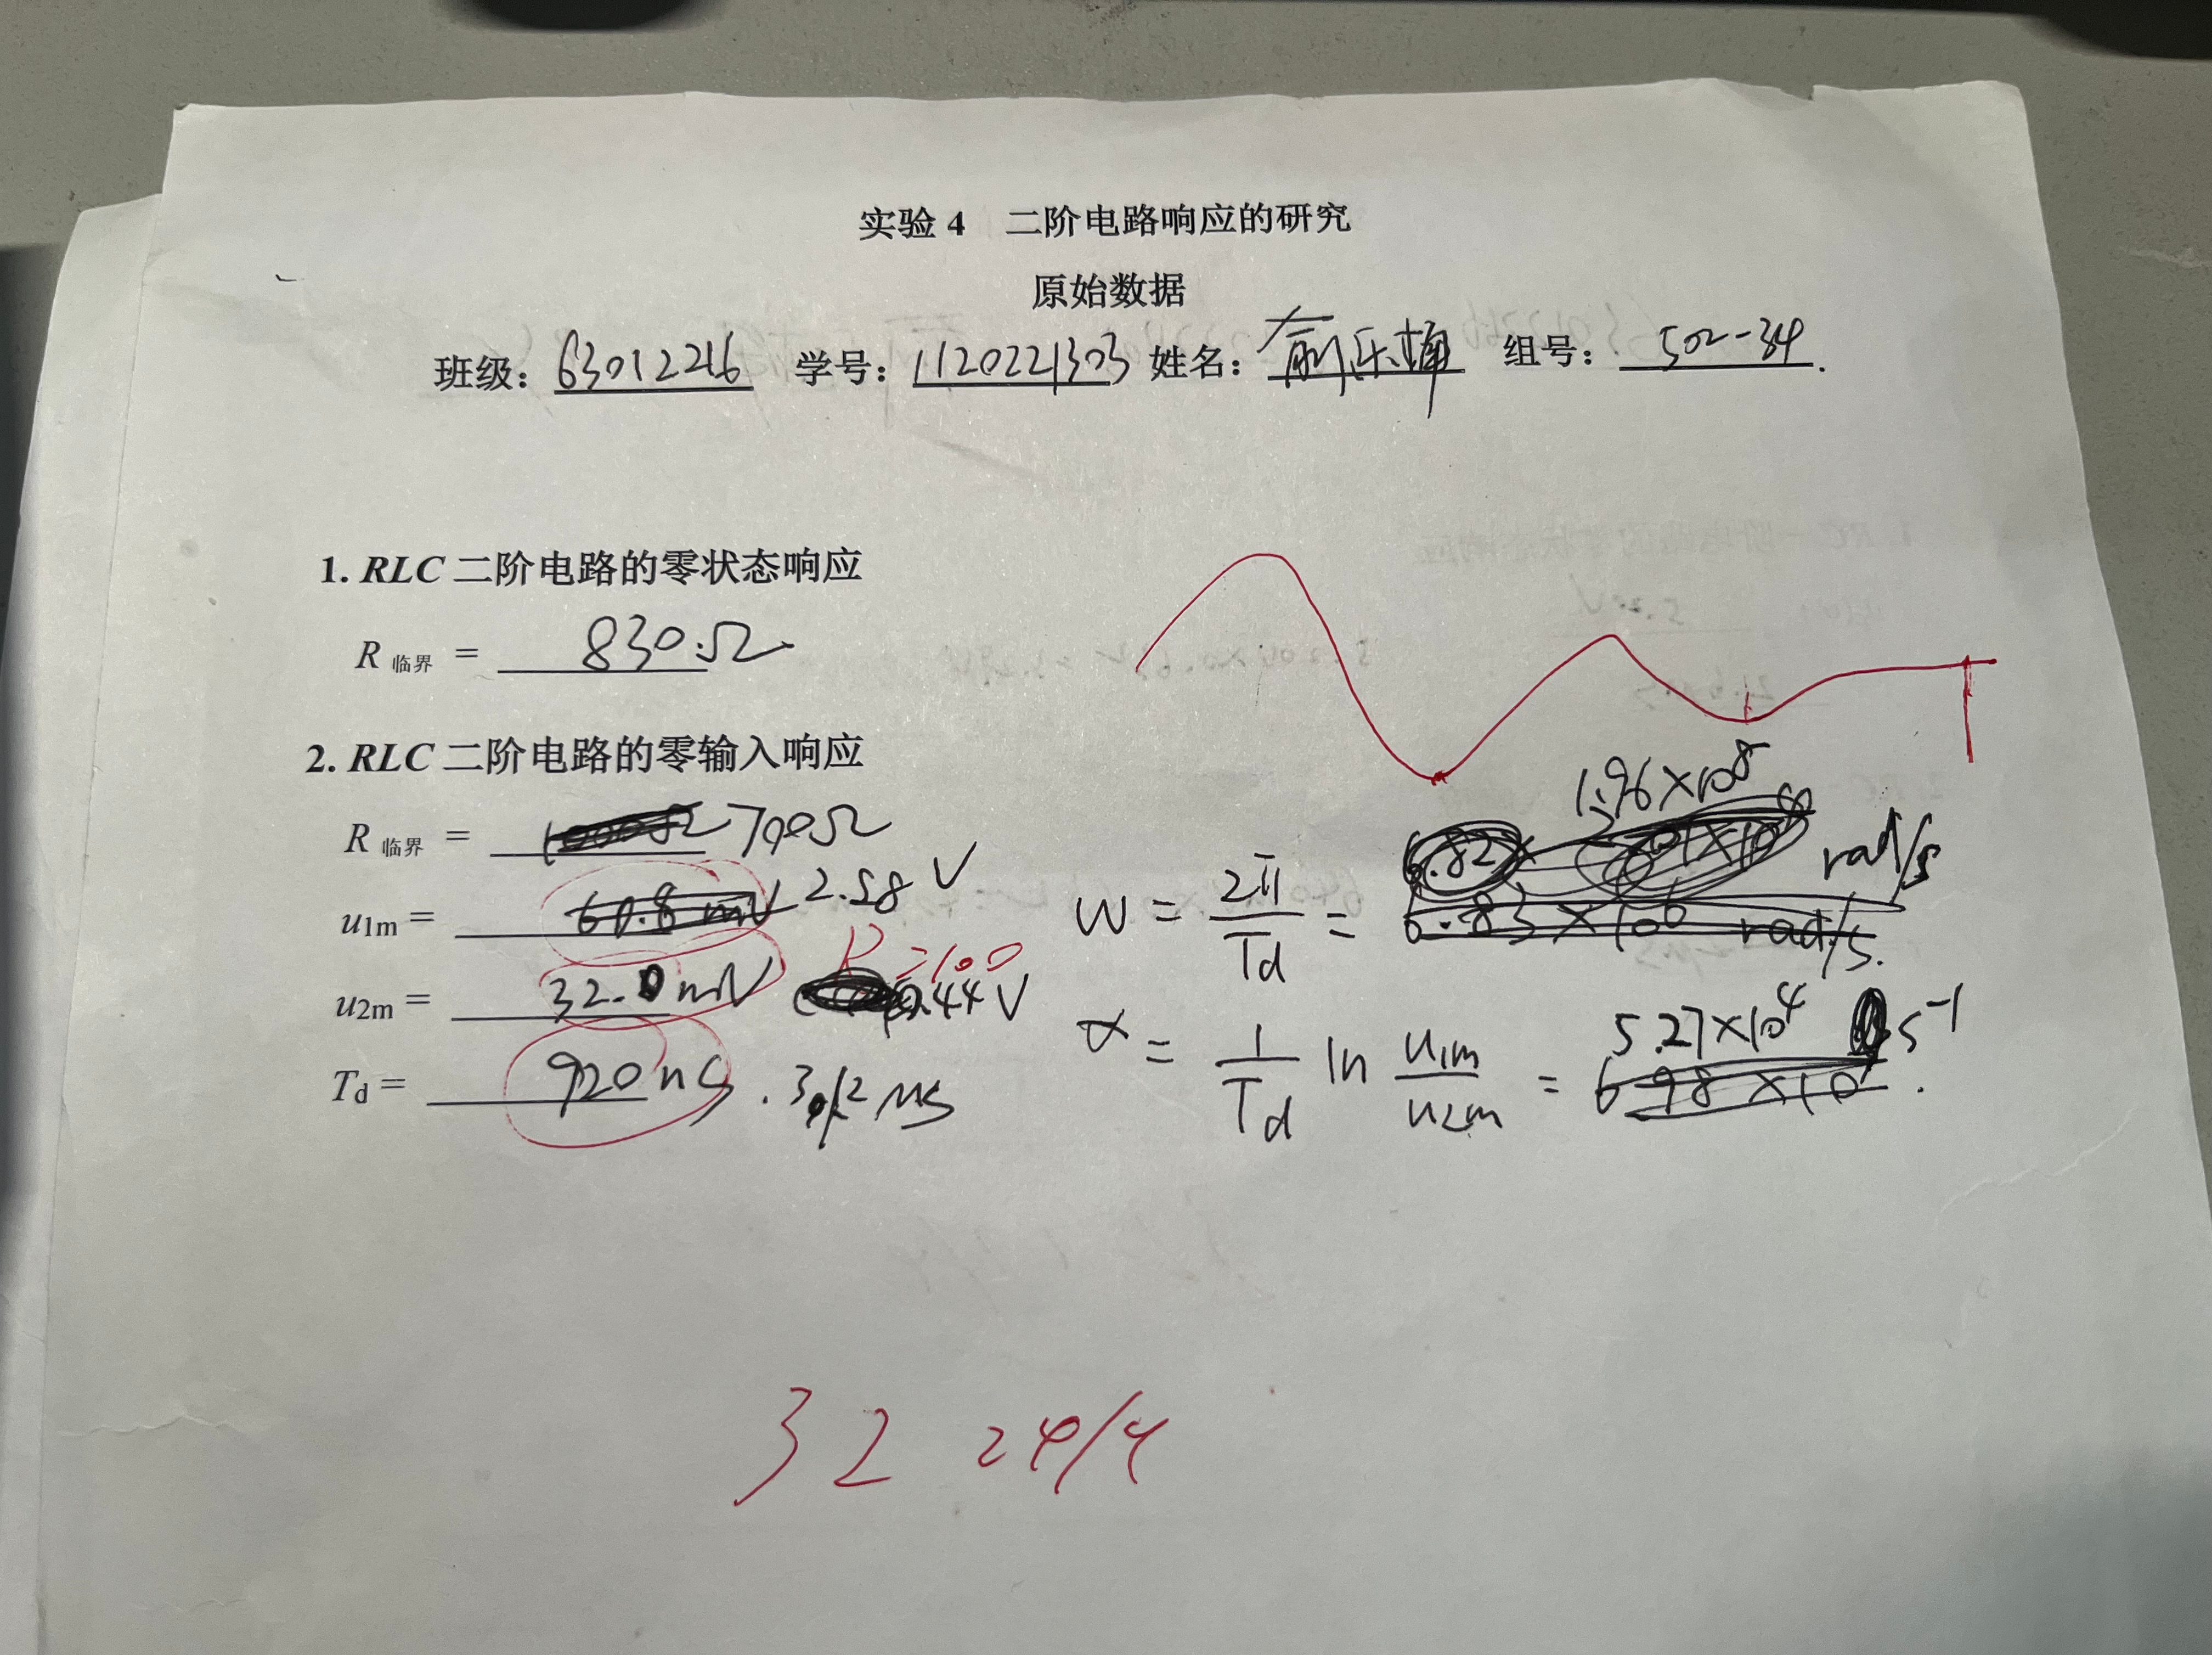 实验 4 二阶电路响应的研究
原始数据
班级：63012216 学号：1120221303 姓名： 组号：502-34
1. RLC 二阶电路的零状态响应
R 临界 = 830Ω
2. RLC 二阶电路的零输入响应
R 临界 = 1000Ω 700Ω
u1m = 60.8 mV 2.58 V
R=100
u2m = 32.0 mV 0.44 V
Td = 920 ns
1.96×10⁸
ω = 2π/Td = rad/s
6.83×10⁶ rad/s.
α = 1/Td ln u1m/u2m = 5.27×10⁴ s⁻¹
32 24/4